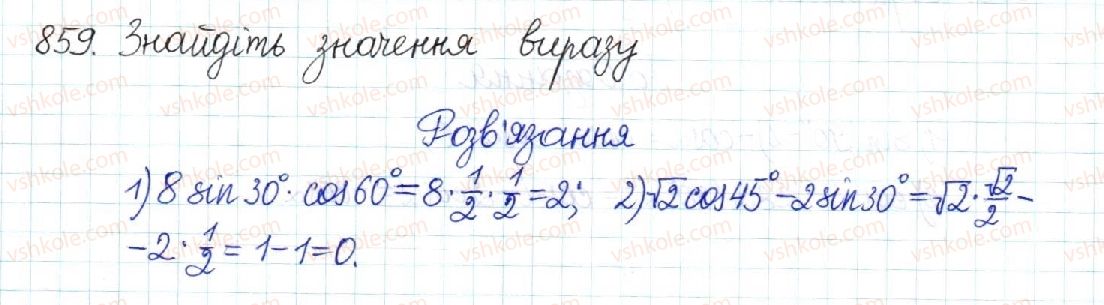 859. Знайдіть значення виразу
Розв'язання
1) 8 sin 30° · cos 60° = 8 · 1/2 · 1/2 = 2; 2) √2 cos 45° - 2 sin 30° = √2 · √2/2 -
- 2 · 1/2 = 1 - 1 = 0.